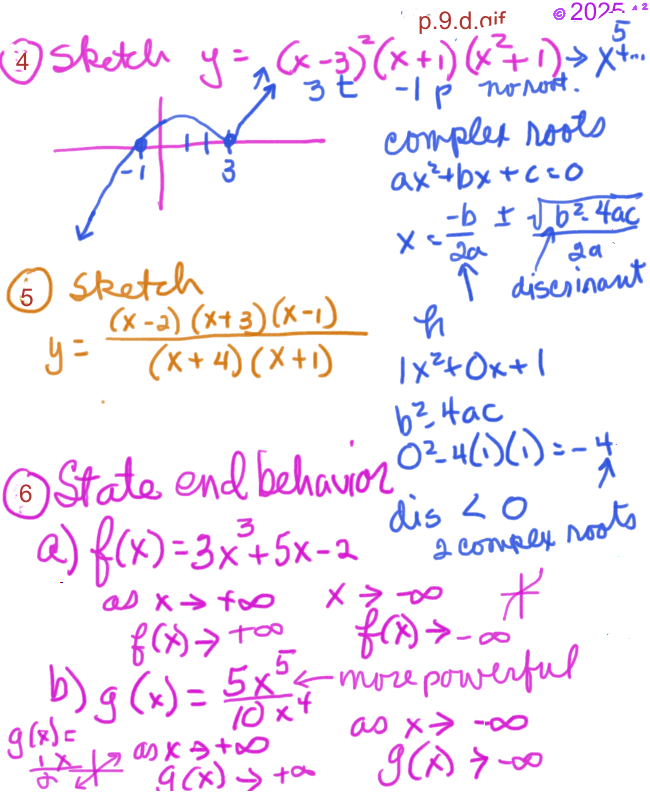 p.9.d.gif © 2025
④ Sketch y = (x-3)²(x+1)(x²+1) → x⁵+...
3 t -1 p no root.
-1 3
complex roots
ax²+bx+c=0
x = -b/2a ± √(b²-4ac)/2a
discrinant
h
1x²+0x+1
b²-4ac
0²-4(1)(1) = -4
dis < 0
2 complex roots
⑤ Sketch
y = (x-2)(x+3)(x-1)/(x+4)(x+1)
⑥ State end behavior
a) f(x) = 3x³+5x-2
as x → +∞ x → -∞
f(x) → +∞ f(x) → -∞
b) g(x) = 5x⁵/10x⁴ ← more powerful
g(x) = 1x/2
as x → +∞ as x → -∞
g(x) → +∞ g(x) → -∞